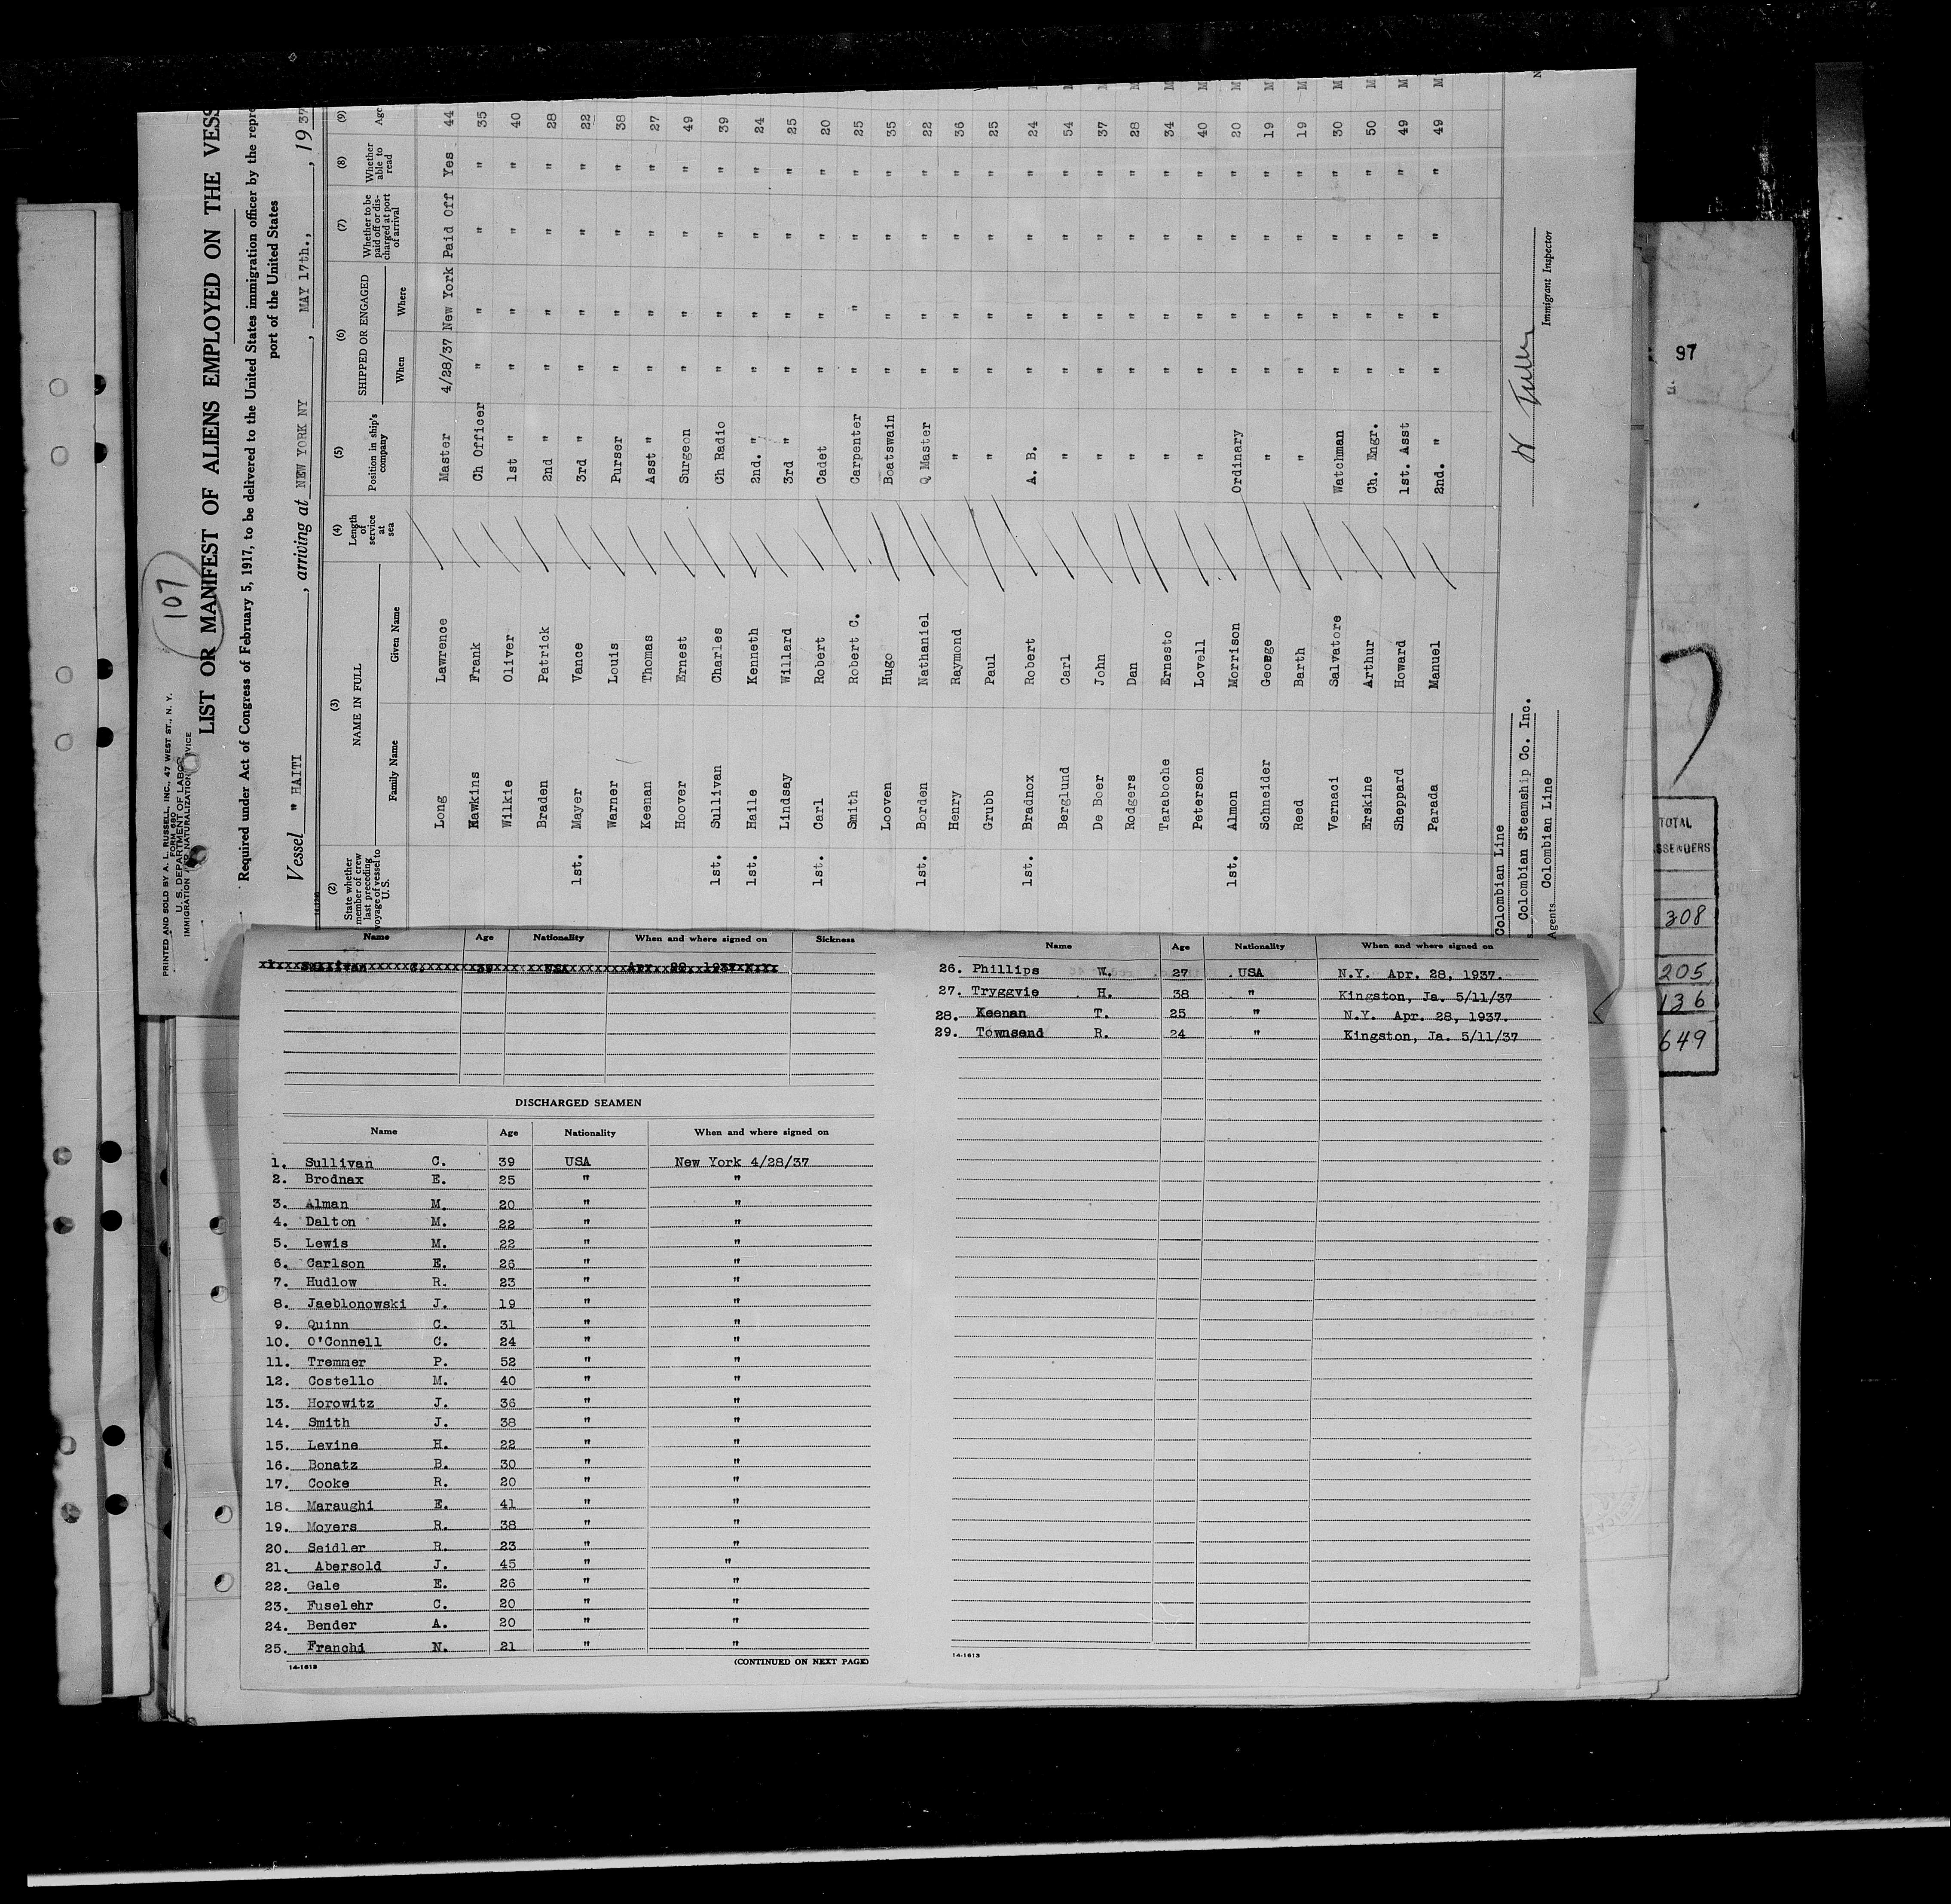 107
PRINTED AND SOLD BY A. L. RUSSELL, INC., 47 WEST ST., N. Y.
FORM 680
U. S. DEPARTMENT OF LABOR
IMMIGRATION AND NATURALIZATION SERVICE
LIST OR MANIFEST OF ALIENS EMPLOYED ON THE VESS
Required under Act of Congress of February 5, 1917, to be delivered to the United States immigration officer by the repre
port of the United States
Vessel " HAITI , arriving at NEW YORK NY , MAY 17th., , 1937
(2) State whether member of crew last preceding voyage of vessel to U. S. (3) NAME IN FULL Family Name Given Name (4) Length of service at sea (5) Position in ship's company (6) SHIPPED OR ENGAGED When Where (7) Whether to be paid off or discharged at port of arrival (8) Whether able to read (9) Age
Long Lawrence Master 4/28/37 New York Paid Off Yes 44 M
Hawkins Frank Ch Officer " " " " 35 M
Wilkie Oliver 1st " " " " " 40 M
Braden Patrick 2nd " " " " " 28 M
1st. Mayer Vance 3rd " " " " " 22 M
Warner Louis Purser " " " " 38 M
Keenan Thomas Asst " " " " " 27 M
Hoover Ernest Surgeon " " " " 49 M
1st. Sullivan Charles Ch Radio " " " " 39 M
1st. Haile Kenneth 2nd. " " " " " 24 M
Lindsay Willard 3rd " " " " " 25 M
1st. Carl Robert Cadet " " " " 20 M
Smith Robert C. Carpenter " " " " 25 M
Looven Hugo Boatswain " " " " 35 M
1st. Borden Nathaniel Q Master " " " " 22 M
Henry Raymond " " " " " 36 M
Grubb Paul " " " " " 25
1st. Bradnox Robert A. B. " " " " 24 M
Berglund Carl " " " " " 54 M
De Boer John " " " " " 37 M
Rodgers Dan " " " " " 28 M
Taraboche Ernesto " " " " " 34 M
Peterson Lovell " " " " " 40 M
1st. Almon Morrison Ordinary " " " " 20 M
Schneider George " " " " " 19 M
Reed Barth " " " " " 19 M
Vernaci Salvatore Watchman " " " " 30 M
Erskine Arthur Ch. Engr. " " " " 50 M
Sheppard Howard 1st. Asst " " " " 49 M
Parada Manuel 2nd. " " " " " 49 M
Colombian Line
Colombian Steamship Co. Inc.
Agents Colombian Line
Immigrant Inspector
97
TOTAL
308
205
136
649
Name Age Nationality When and where signed on Sickness
1. Sullivan C. 39 USA Apr. 28, 1937 N.Y.
DISCHARGED SEAMEN
Name Age Nationality When and where signed on
1. Sullivan C. 39 USA New York 4/28/37
2. Brodnax E. 25 " "
3. Alman M. 20 " "
4. Dalton M. 22 " "
5. Lewis M. 22 " "
6. Carlson E. 26 " "
7. Hudlow R. 23 " "
8. Jaeblonowski J. 19 " "
9. Quinn C. 31 " "
10. O'Connell C. 24 " "
11. Tremmer P. 52 " "
12. Costello M. 40 " "
13. Horowitz J. 36 " "
14. Smith J. 38 " "
15. Levine H. 22 " "
16. Bonatz B. 30 " "
17. Cooke R. 20 " "
18. Maraughi E. 41 " "
19. Moyers R. 38 " "
20. Seidler R. 23 " "
21. Abersold J. 45 " "
22. Gale E. 26 " "
23. Fuselehr C. 20 " "
24. Bender A. 20 " "
25. Franchi N. 21 " "
14-1613 (CONTINUED ON NEXT PAGE)
Name Age Nationality When and where signed on
26. Phillips W. 27 USA N.Y. Apr. 28, 1937.
27. Tryggvie H. 38 " Kingston, Ja. 5/11/37
28. Keenan T. 25 " N.Y. Apr. 28, 1937.
29. Townsend R. 24 " Kingston, Ja. 5/11/37
14-1613